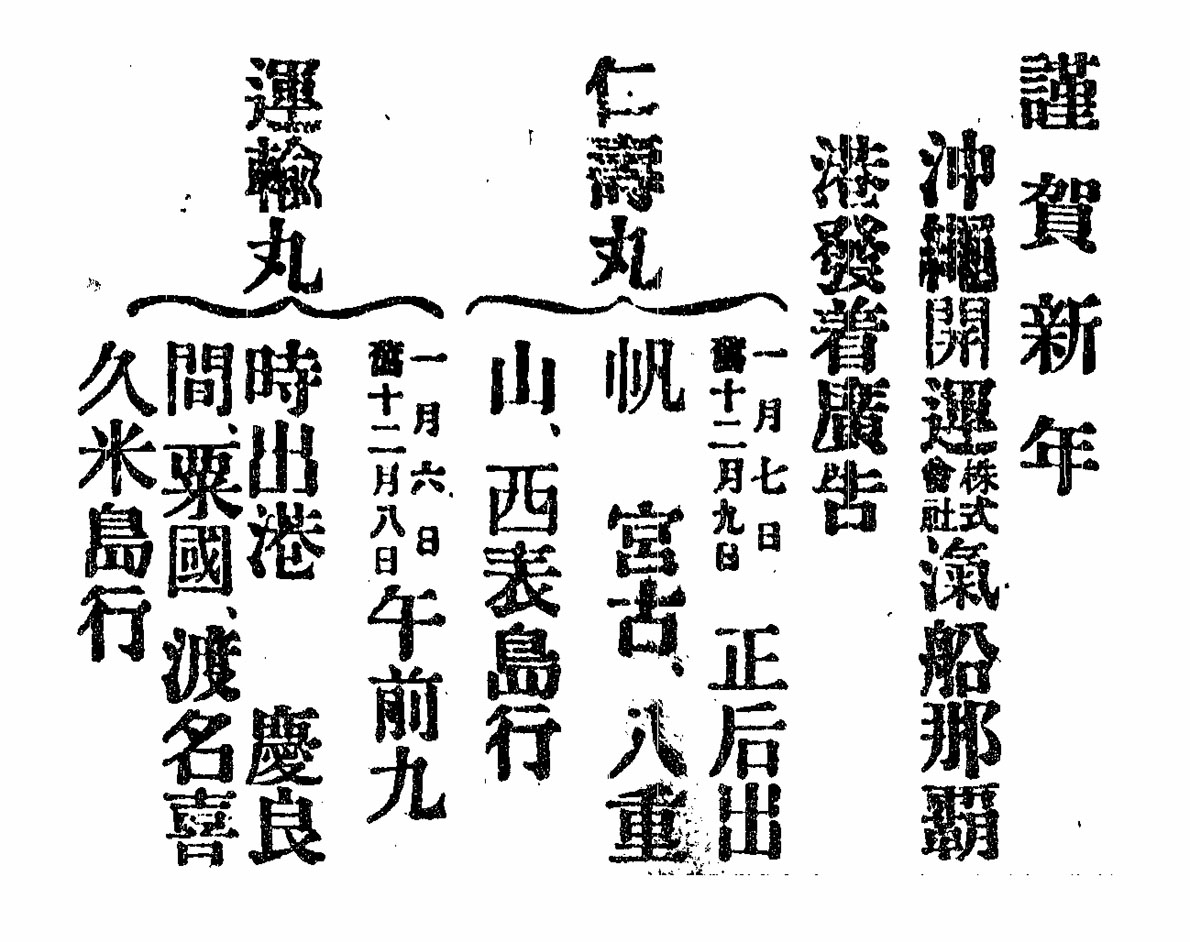 謹賀新年
沖繩開運株式會社滊船那覇
港發着廣告
仁壽丸
一月七日
舊十二月九日
正后出
帆 宮古、八重
山、西表島行
運輸丸
一月六日
舊十二月八日
午前九
時出港 慶良
間、粟國、渡名喜
久米島行